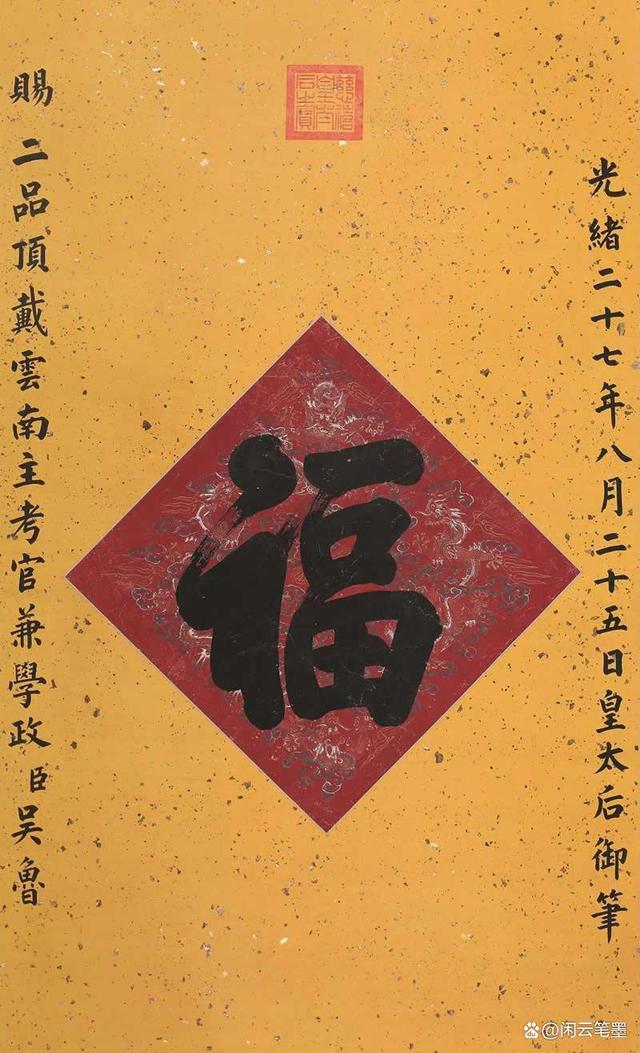 慈禧皇太后之寶
光緒二十七年八月二十五日皇太后御筆
福
賜二品頂戴雲南主考官兼學政臣吳魯
@闲云笔墨